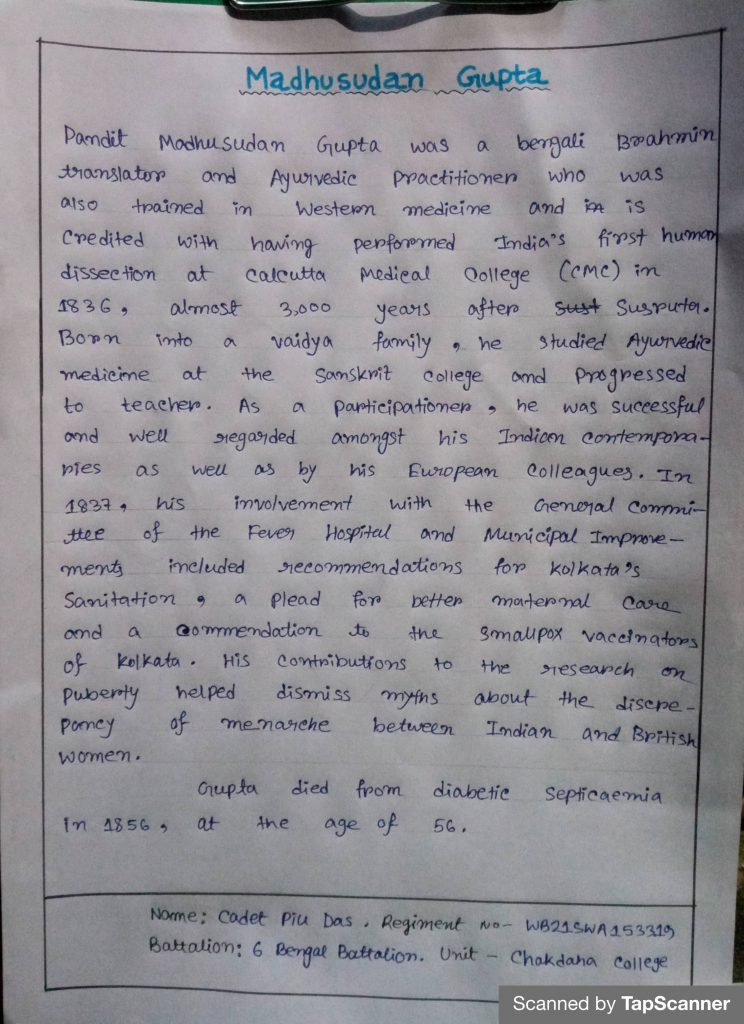 Madhusudan Gupta
Pandit Madhusudan Gupta was a bengali Brahmin
translator and Ayurvedic Practitioner who was
also trained in Western medicine and is
credited with having performed India's first human
dissection at Calcutta Medical College (CMC) in
1836, almost 3,000 years after Susruta.
Born into a vaidya family, he studied Ayurvedic
medicine at the Sanskrit College and Progressed
to teacher. As a participationer, he was successful
and well regarded amongst his Indian contempora-
ries as well as by his European Colleagues. In
1837, his involvement with the General Commi-
ttee of the Fever Hospital and Municipal Improve-
ments included recommendations for Kolkata's
Sanitation, a plead for better maternal care
and a commendation to the smallpox vaccinators
of Kolkata. His contributions to the research on
puberty helped dismiss myths about the discre-
pancy of menarche between Indian and British
women.
Gupta died from diabetic septicaemia
In 1856, at the age of 56.
Name: Cadet Piu Das. Regiment No- WB21SWA153319
Battalion: 6 Bengal Battalion. Unit - Chakdaha College
Scanned by TapScanner